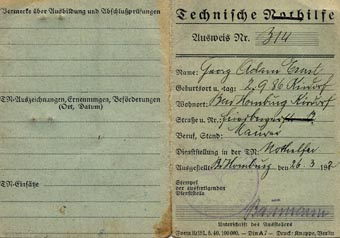 Vermerke über Ausbildung und Abschlußprüfungen
TN-Auszeichnungen, Ernennungen, Beförderungen
(Ort, Datum)
TN-Einsätze
Technische Nothilfe
Ausweis Nr. 314
Name: Georg Adam Ernst
Geburtsort u. -tag: 2.9.86 Kirdorf
Wohnort: Bad Homburg Kirdorf
Straße u. Nr.
Beruf, Stand: Maurer
Dienststellung in der TN: Nothelfer
Ausgestellt: B. Homburg, den 26.3.19
Stempel
der ausfertigenden
Dienststelle
Baumann
Unterschrift des Ausstellers
Form 5. 40. 100 000. - Din A 7 - Druck: Knappe, Berlin